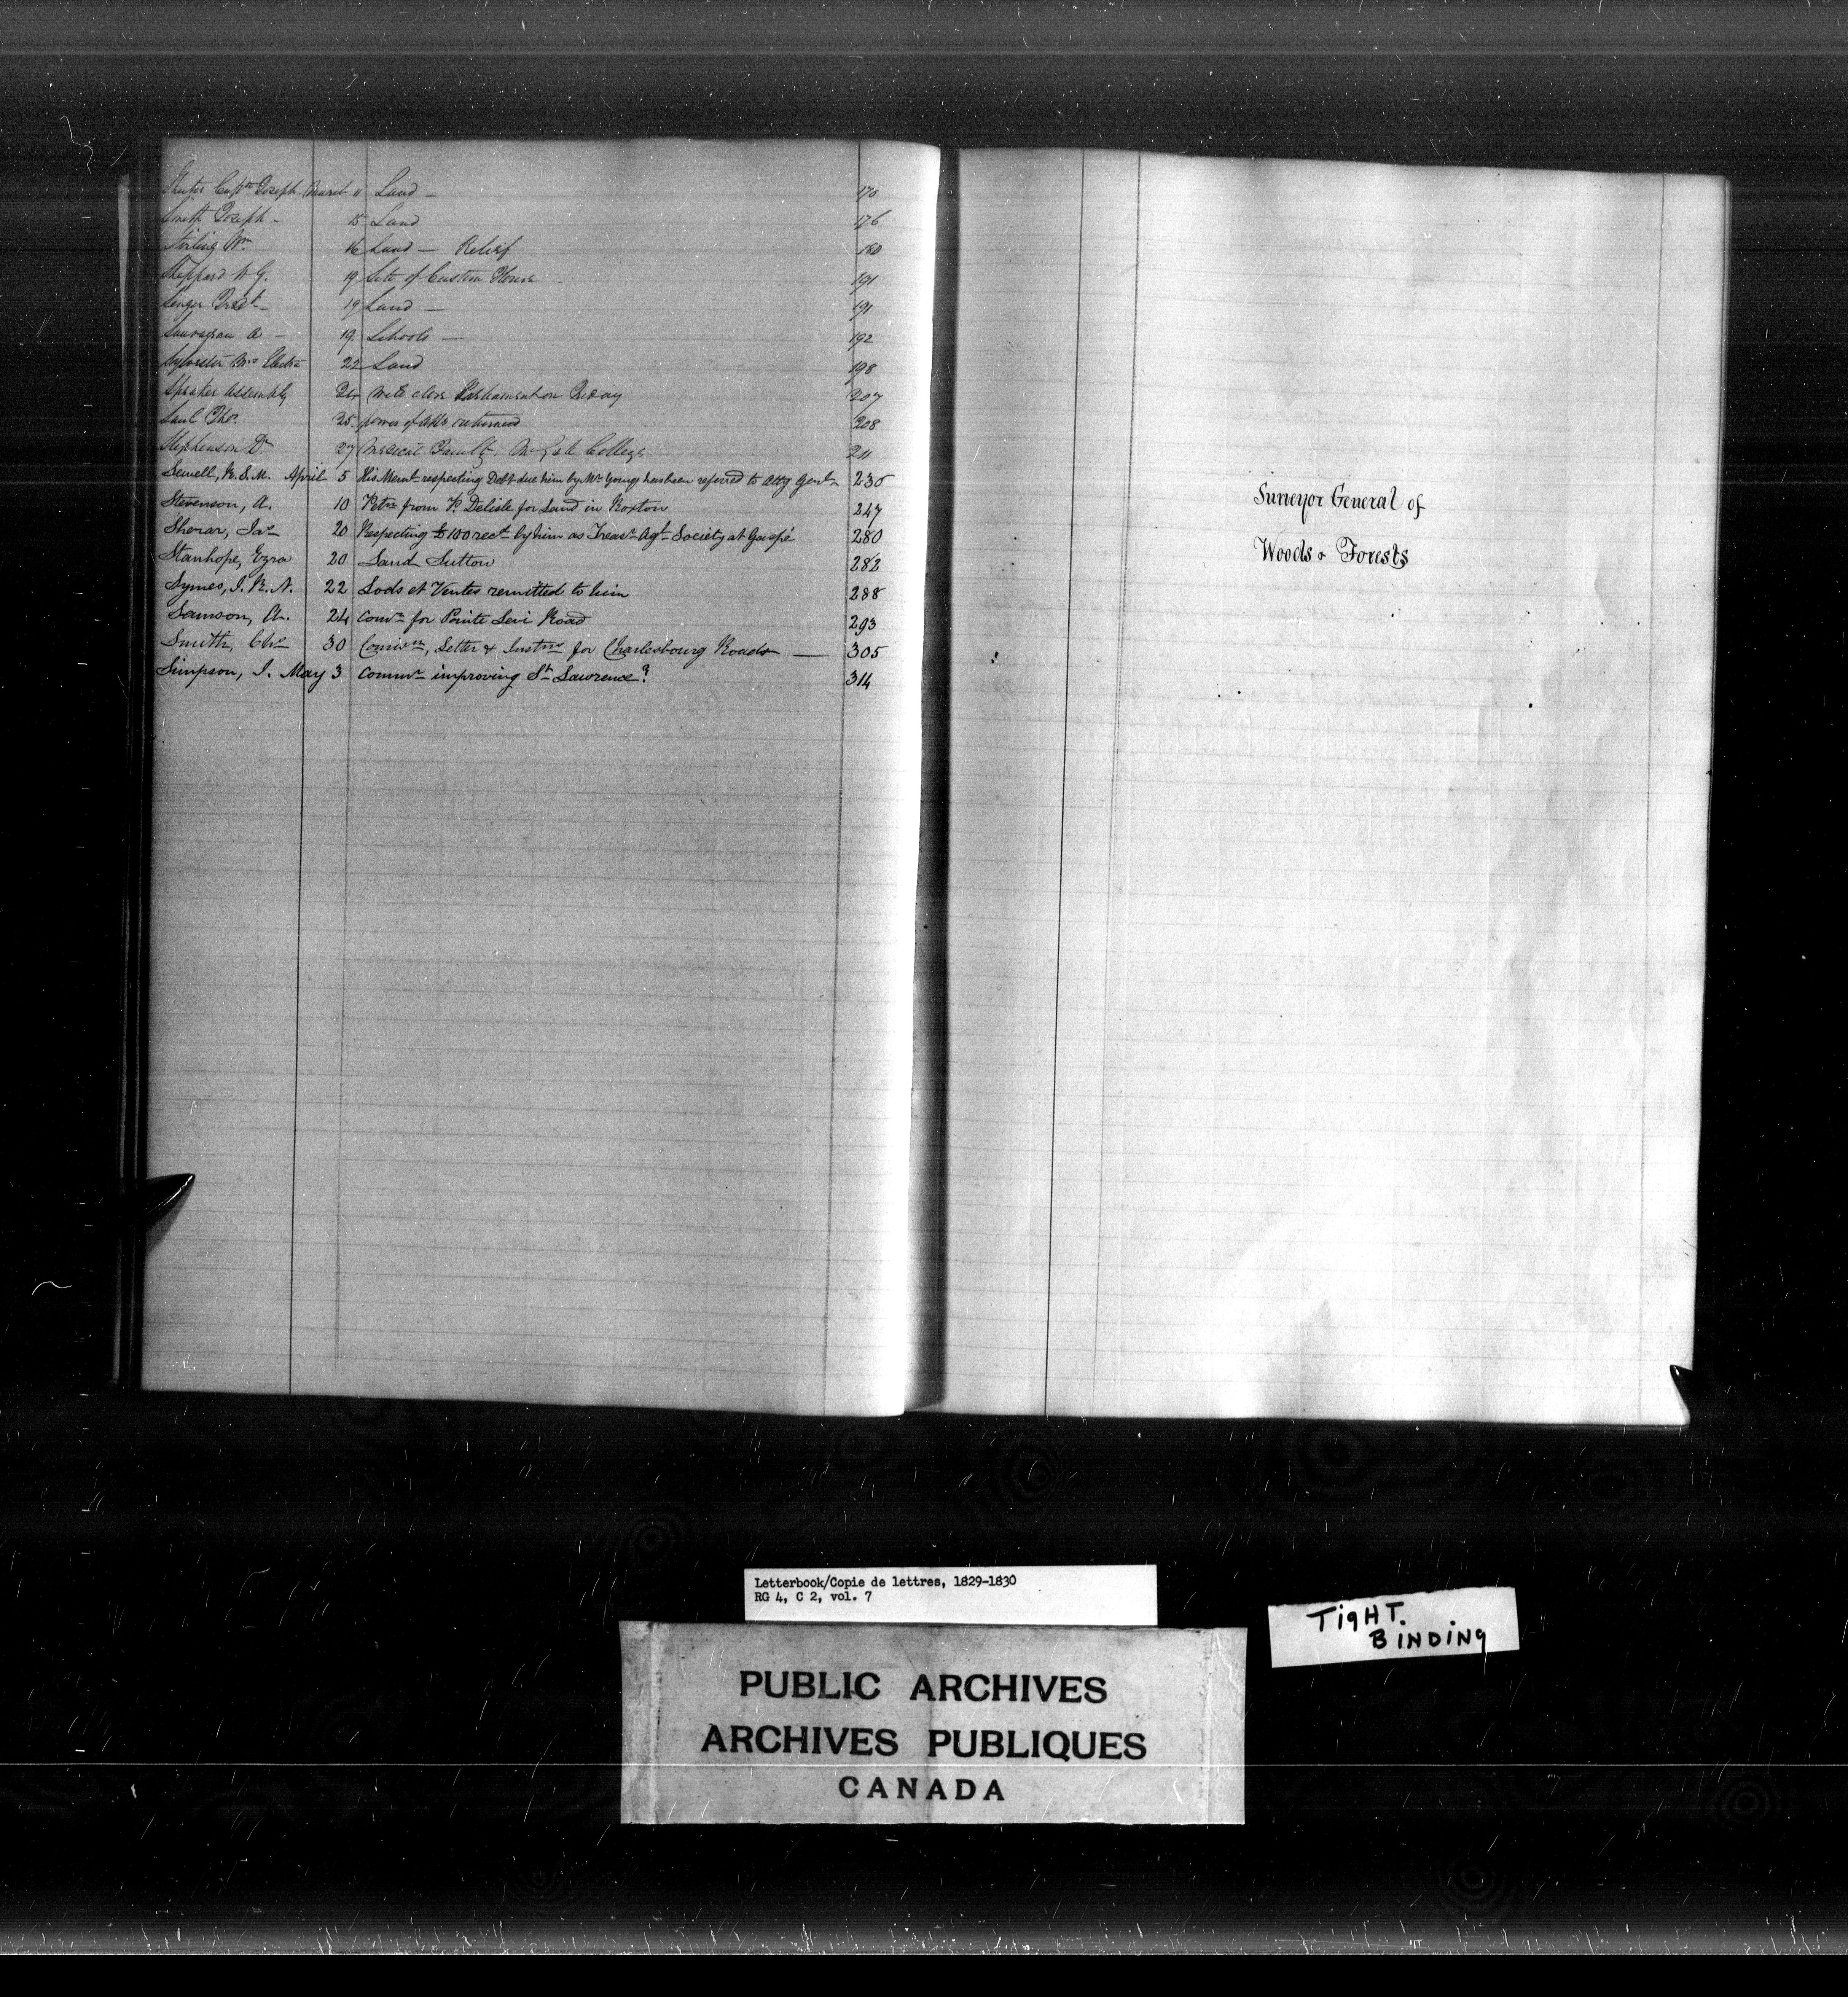 Capt. Joseph March 11 Land – 175
Smith Joseph – 15 Land 176
Stirling Wm 16 Land – Relief 180
Sheppard W G. 19 Site of Custom House 191
19 Land – 191
A – 19 Schools – 192
Sylvester Mrs Electa 22 Land 198
Speaker Assembly 24 will close Parliament on Friday 207
Saul Thos. 25 power of Atty returned 208
Stephenson Dr 27 Medical Faculty McGill College 211
Sewell, R. S. M. April 5 His Meml respecting Debt due him by Mr Young has been referred to Atty Genl 235
Stevenson, A. 10 Petn from P. Delisle for Land in Roxton 247
Sherar, Jas 20 Respecting £100 recd by him as Treasr Agl Society at Gaspé 280
Stanhope, Ezra 20 Land Sutton 282
Symes, J. R. N. 22 Lods et Ventes remitted to him 288
Samson, A. 24 Comn for Pointe Levi Road 293
Smith, Chs 30 Comisn, Letter & Instns for Charlesbourg Roads — 305
Simpson, J. May 3 Commn improving St Lawrence 314
Surveyor General of
Woods & Forests
Letterbook/Copie de lettres, 1829-1830
RG 4, C 2, vol. 7
TigHT.
BINDiNg
PUBLIC ARCHIVES
ARCHIVES PUBLIQUES
CANADA